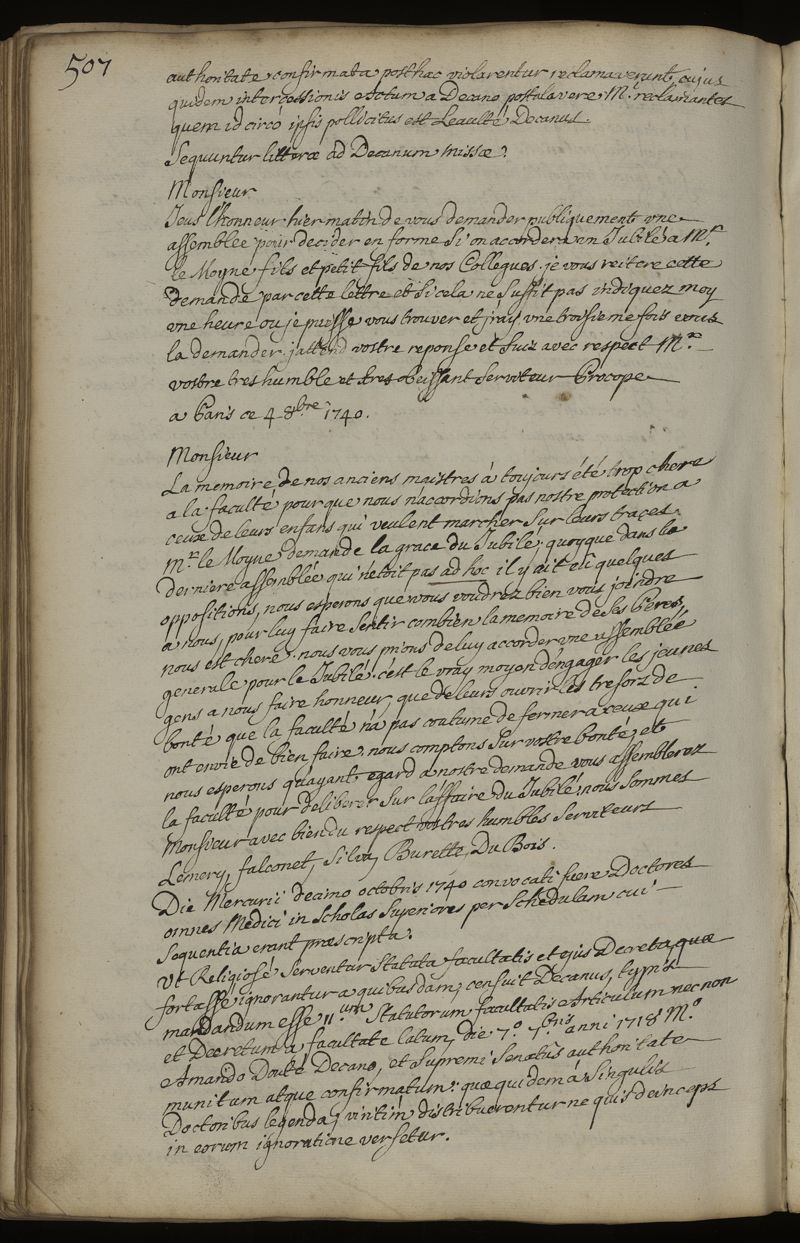 507
authoritate confirmata posthac violarentur reclamaverunt, cujus
quidem intercessionis actum a Decano postulavere M.ri reclamantes
quem id circò ipsis pollicitus est Leaulté Decanus.
Sequuntur litteræ ad Decanum missæ.
Monsieur
J'eus l'honneur hier matin de vous demander publiquement une
assemblée pour decider en forme si on accordera un Jubilé a Mr.
le Moyne fils et petit fils de nos Collegues. je vous reitere cette
demande par cette lettre et si cela ne suffit pas indiquez moy
une heure ou je puisse vous trouver et j'iray une troisieme fois vous
la demander. j'attend vostre reponse et suiz avec respect M.r
vostre tres humble et tres obeissant Serviteur Procope
a Paris ce 4 8bre 1740.
Monsieur
La memoire de nos anciens maistres à toujours été trop chere
a la faculté pour que nous n'accordions pas nostre protection a
ceux de leurs enfans qui veulent marcher sur leurs traces.
M.r le Moyne demande la grace du Jubilé; quoyque dans la
derniere assemblée qui n'étoit pas ad hoc il y ait eû quelques
oppositions, nous esperons que vous voudrez bien vous joindre
a nous, pour luy faire sentir combien la memoire de ses Peres,
nous est chere. nous vous prions de luy accorder une assemblée
generale pour le Jubilé. c'est le vray moyen d'engager les jeunes
gens a nous faire honneur, que de leurs ouvrir les tresorz de
bonté que la faculté n'a pas coutume de fermer a ceux qui
ont envie de bien faire. nous comptons sur vostre bonté, et
nous esperons qu'ayant egard a nostre demande vous assemblerez
la faculté pour deliberer sur l'affaire du Jubilé, nous sommes
Monsieur avec bien du respect vostres humbles Serviteurs
Lemery, falconet, Silva, Burette, Du Bois.
Die Mercurii decimo octobris 1740 convocati fuere Doctores
omnes Medici in Scholas Superiores per Schedulam cui
Sequentia erant præscripta.
Ut Religiosé Serventur Statuta facultatis et ejus Decreta, quæ
fortasse ignorantur a quibusdam, censuit Decanus, typis
mandandum esse 11.um Statutorum facultatis Articulum nec non
et Decretum a facultate latum, die 7.o 7bris anni 1718 M.o
Amando Douté Decano, et Supremi Senatûs authoritate
munitum atque confirmatum: quæ quidem a Singulis
Doctoribus legenda, viritim distribuerentur ne quis deinceps
in eorum ignoratione versetur.